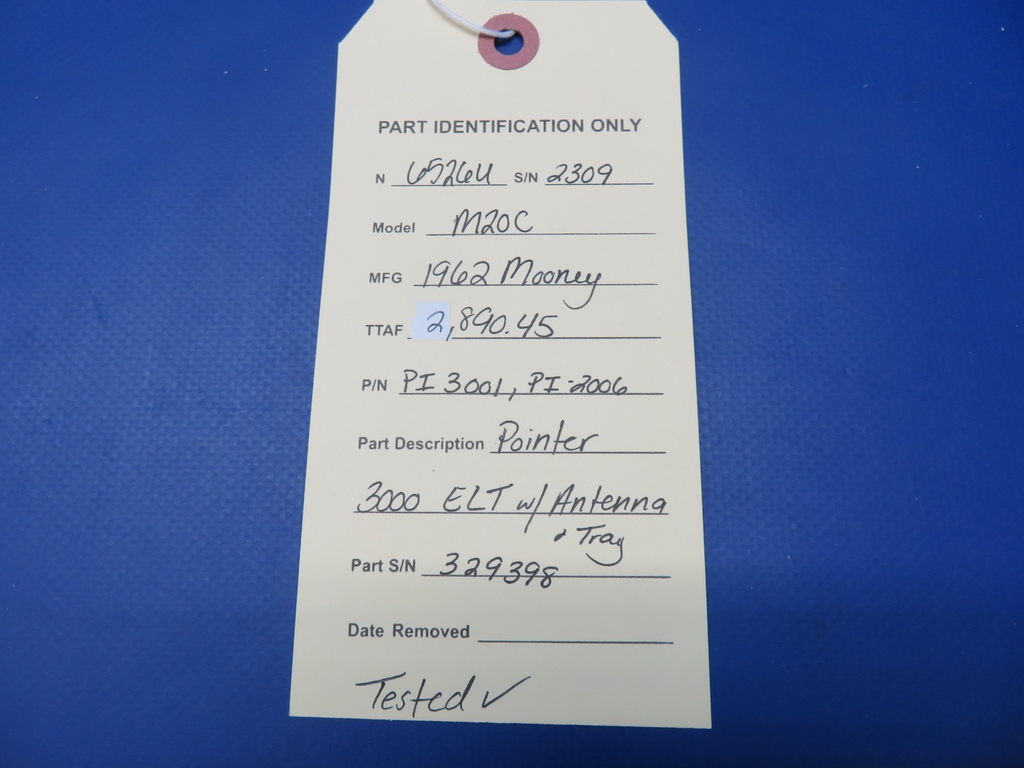 PART IDENTIFICATION ONLY
N 6526U S/N 2309
Model M20C
MFG 1962 Mooney
TTAF 2,890.45
P/N PI 3001, PI-2006
Part Description Pointer
3000 ELT w/ Antenna
& Tray
Part S/N 329398
Date Removed
Tested ✓